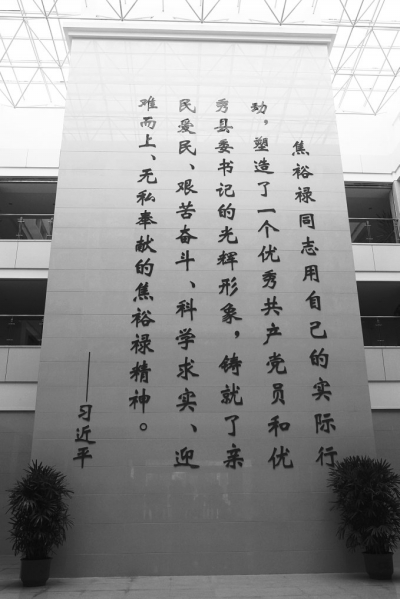 焦裕禄同志用自己的实际行
动，塑造了一个优秀共产党员和优
秀县委书记的光辉形象，铸就了亲
民爱民、艰苦奋斗、科学求实、迎
难而上、无私奉献的焦裕禄精神。
——习近平